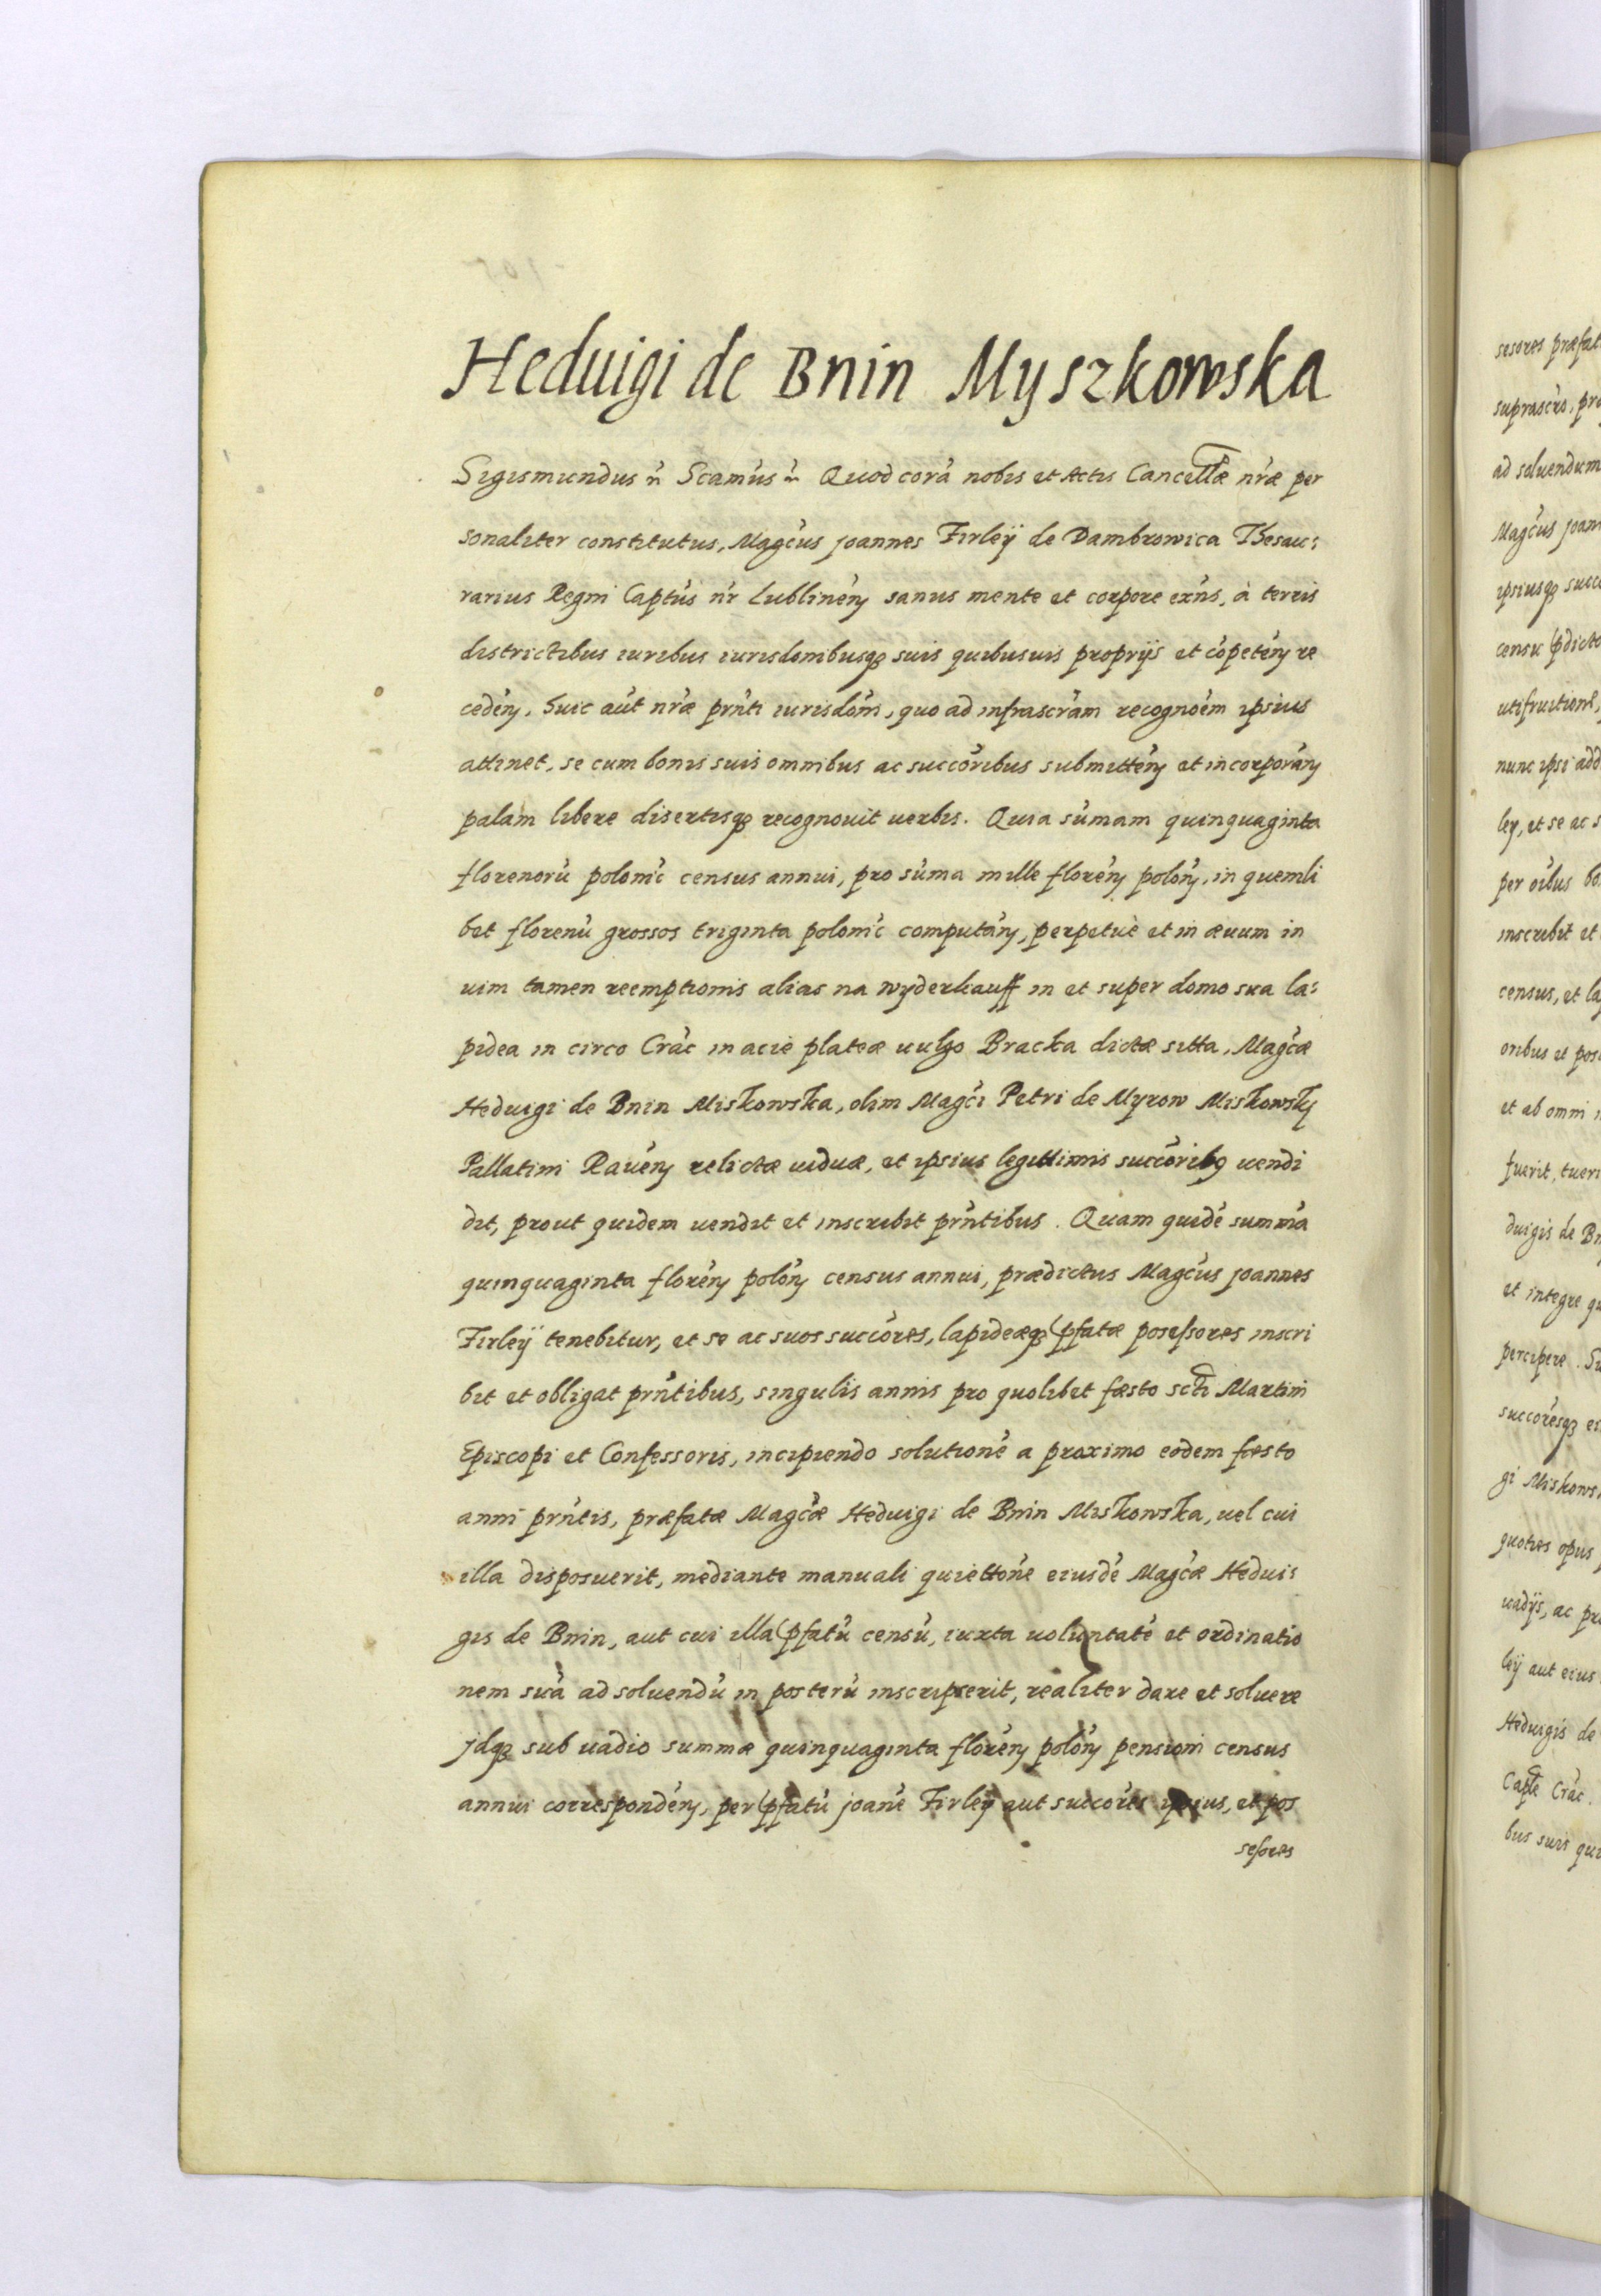 Heduigi de Bnin Myszkowska
Sigismundus Scam̃us Quod corã nobis et Actis Cancell̃æ nr̃æ per
sonaliter constitutus, Magc̃us Joannes Firleÿ de Dambrowica Thesau:
rarius Regni Capt̃us nr̃ Lublineñ sanus mente et corpore exñs, à terris
districtibus iuribus iurisdonibusq₃ suis quibusuis proprijs et cõpeteñ re
cedeñ, huic aũt nr̃æ prñti iurisdoñi, quo ad infrascrãm recognoẽm ipsius
attinet, se cum bonis suis omnibus ac succõribus submitteñ et incorporañ
palam libere disertisq₃ recognouit uerbis. Quia sũmam quinquaginta
florenorũ polonic̃ census annui, pro sũma mille floreñ poloñ, in quemli
bet florenũ grossos triginta polonic̃ computañ, perpetuè et in æuum in
uim tamen reemptionis alias na wyderkauff in et super domo sua la:
pidea in circo Crac̃ in acie plateæ uulgo Bracka dictæ sitta, Magc̃æ
Heduigi de Bnin Miskowska, olim Magc̃i Petri de Myrow Miskowsky
Pallatini Raueñ relictæ uiduæ, et ipsius legittimis succõribq uendi
dit, prout quidem uendit et inscribit prñtibus. Quam quidẽ summã
quinquaginta floreñ poloñ census annui, prædictus Magc̃us Joannes
Firleÿ tenebitur, et se ac suos succõres, lapideæq₃ p̃fatæ posessores inscri
bit et obligat prñtibus, singulis annis pro quolibet fæsto sct̃i Martini
Episcopi et Confessoris, incipiendo solutionẽ a proximo eodem fæsto
anni prñtis, præfatæ Magc̃æ Heduigi de Bnin Miskowska, uel cui
illa disposuerit, mediante manuali quiettoñe eiusdẽ Magc̃æ Hedui:
gis de Bnin, aut cui illa p̃fatũ censũ, iuxta uoluntatẽ et ordinatio
nem suã ad soluendũ in posterũ inscripserit, realiter dare et soluere
jdq₃ sub uadio summæ quinquaginta floreñ poloñ pensioni census
annui correspondeñ, per p̃fatũ Joanẽ Firleÿ aut succõres ipsius, et pos
sessores
sesores præfat
suprascro, pro
ad soluendum
Magc̃us Joan
ipsiusq₃ succ
censu p̃dicto
utifruitione,
nunc ipsi add
ley, et se ac s
per oĩbus bo
inscribit et
census, et la
oribus et pos
et ab omni i
fuerit, tueri
duigis de Bn
et integre qu
percipere. Su
succõresq₃ ei
gi Miskows
quoties opus
uadijs, ac pr
leÿ aut eius
Heduigis de
Capt̃ Crac̃.
bus suis qui